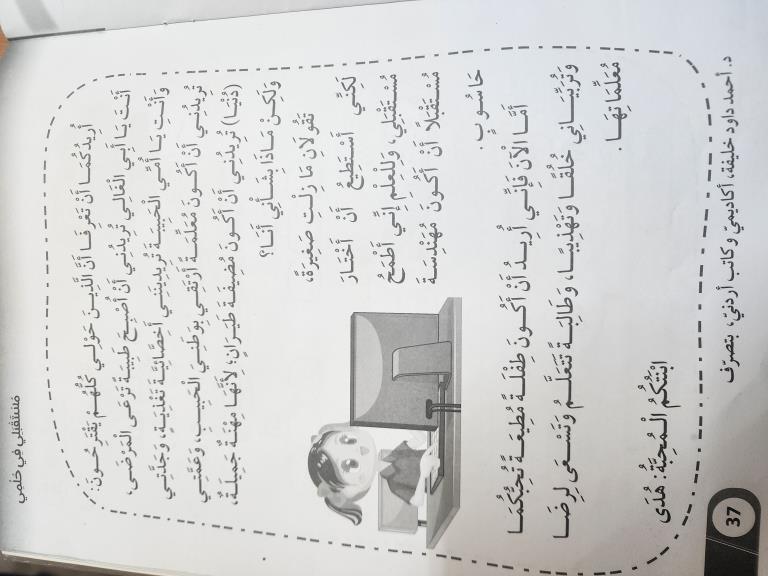 مُسْتَقْبَلِي فِي حُلْمِي
أُرِيدُكُمَا أَنْ تَعْرِفَا أَنَّ الَّذِينَ حَوْلِي كُلُّهُمْ يَقْتَرِحُونَ:
أَنْتَ يَا أَبِي الْغَالِي تُرِيدُنِي أَنْ أُصْبِحَ طَبِيبَةً تَرْعَى الْمَرْضَى،
وَأَنْتِ يَا أُمِّي الْحَبِيبَةَ تُرِيدِينَنِي أَخِصَّائِيَّةَ تَغْذِيَةٍ، وَجَدَّتِي
تُرِيدُنِي أَنْ أَكُونَ مُعَلِّمَةً أَرْتَقِي بِوَطَنِيَ الْحَبِيبِ، وَعَمَّتِي
(دُنْيَا) تُرِيدُنِي أَنْ أَكُونَ مُضِيفَةَ طَيَرَانٍ؛ لِأَنَّهَا مِهْنَةٌ جَمِيلَةٌ،
وَلَكِنْ مَاذَا بِشَأْنِي أَنَا؟
تَقُولَانِ مَا زِلْتِ صَغِيرَةً،
لَكِنَّنِي أَسْتَطِيعُ أَنْ أَخْتَارَ
مُسْتَقْبَلِي، وَلِلْعِلْمِ إِنَّنِي أَطْمَحُ
مُسْتَقْبَلًا أَنْ أَكُونَ مُهَنْدِسَةَ
حَاسُوبٍ.
أَمَّا الْآنَ فَإِنَّنِي أُرِيدُ أَنْ أَكُونَ طِفْلَةً مُطِيعَةً تُحِبُّكُمَا
وَتُرَبِّيَانِي خُلُقًا وَتَهْذِيبًا، وَطَالِبَةً تَتَعَلَّمُ وَتَسْعَى لِرِضَا
مُعَلِّمَاتِهَا.
ابْنَتُكُمُ الْمُحِبَّةُ: هُدَى
د. أحمد داود خليفة، أكاديميّ وكاتب أردنيّ، بتصرّف
37